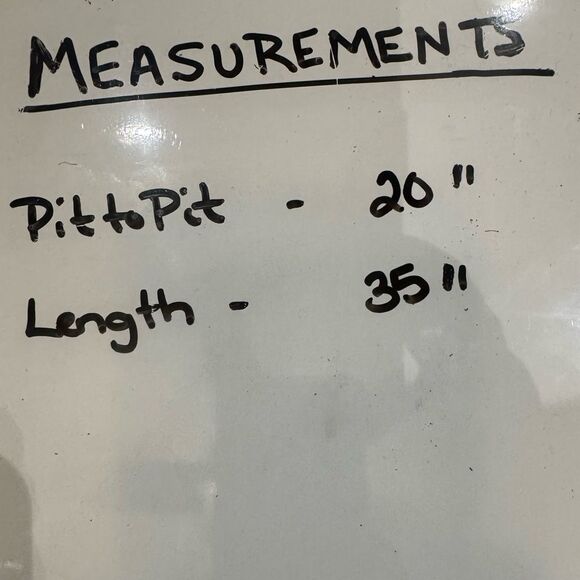 MEASUREMENTS
Pit to Pit - 20"
Length - 35"